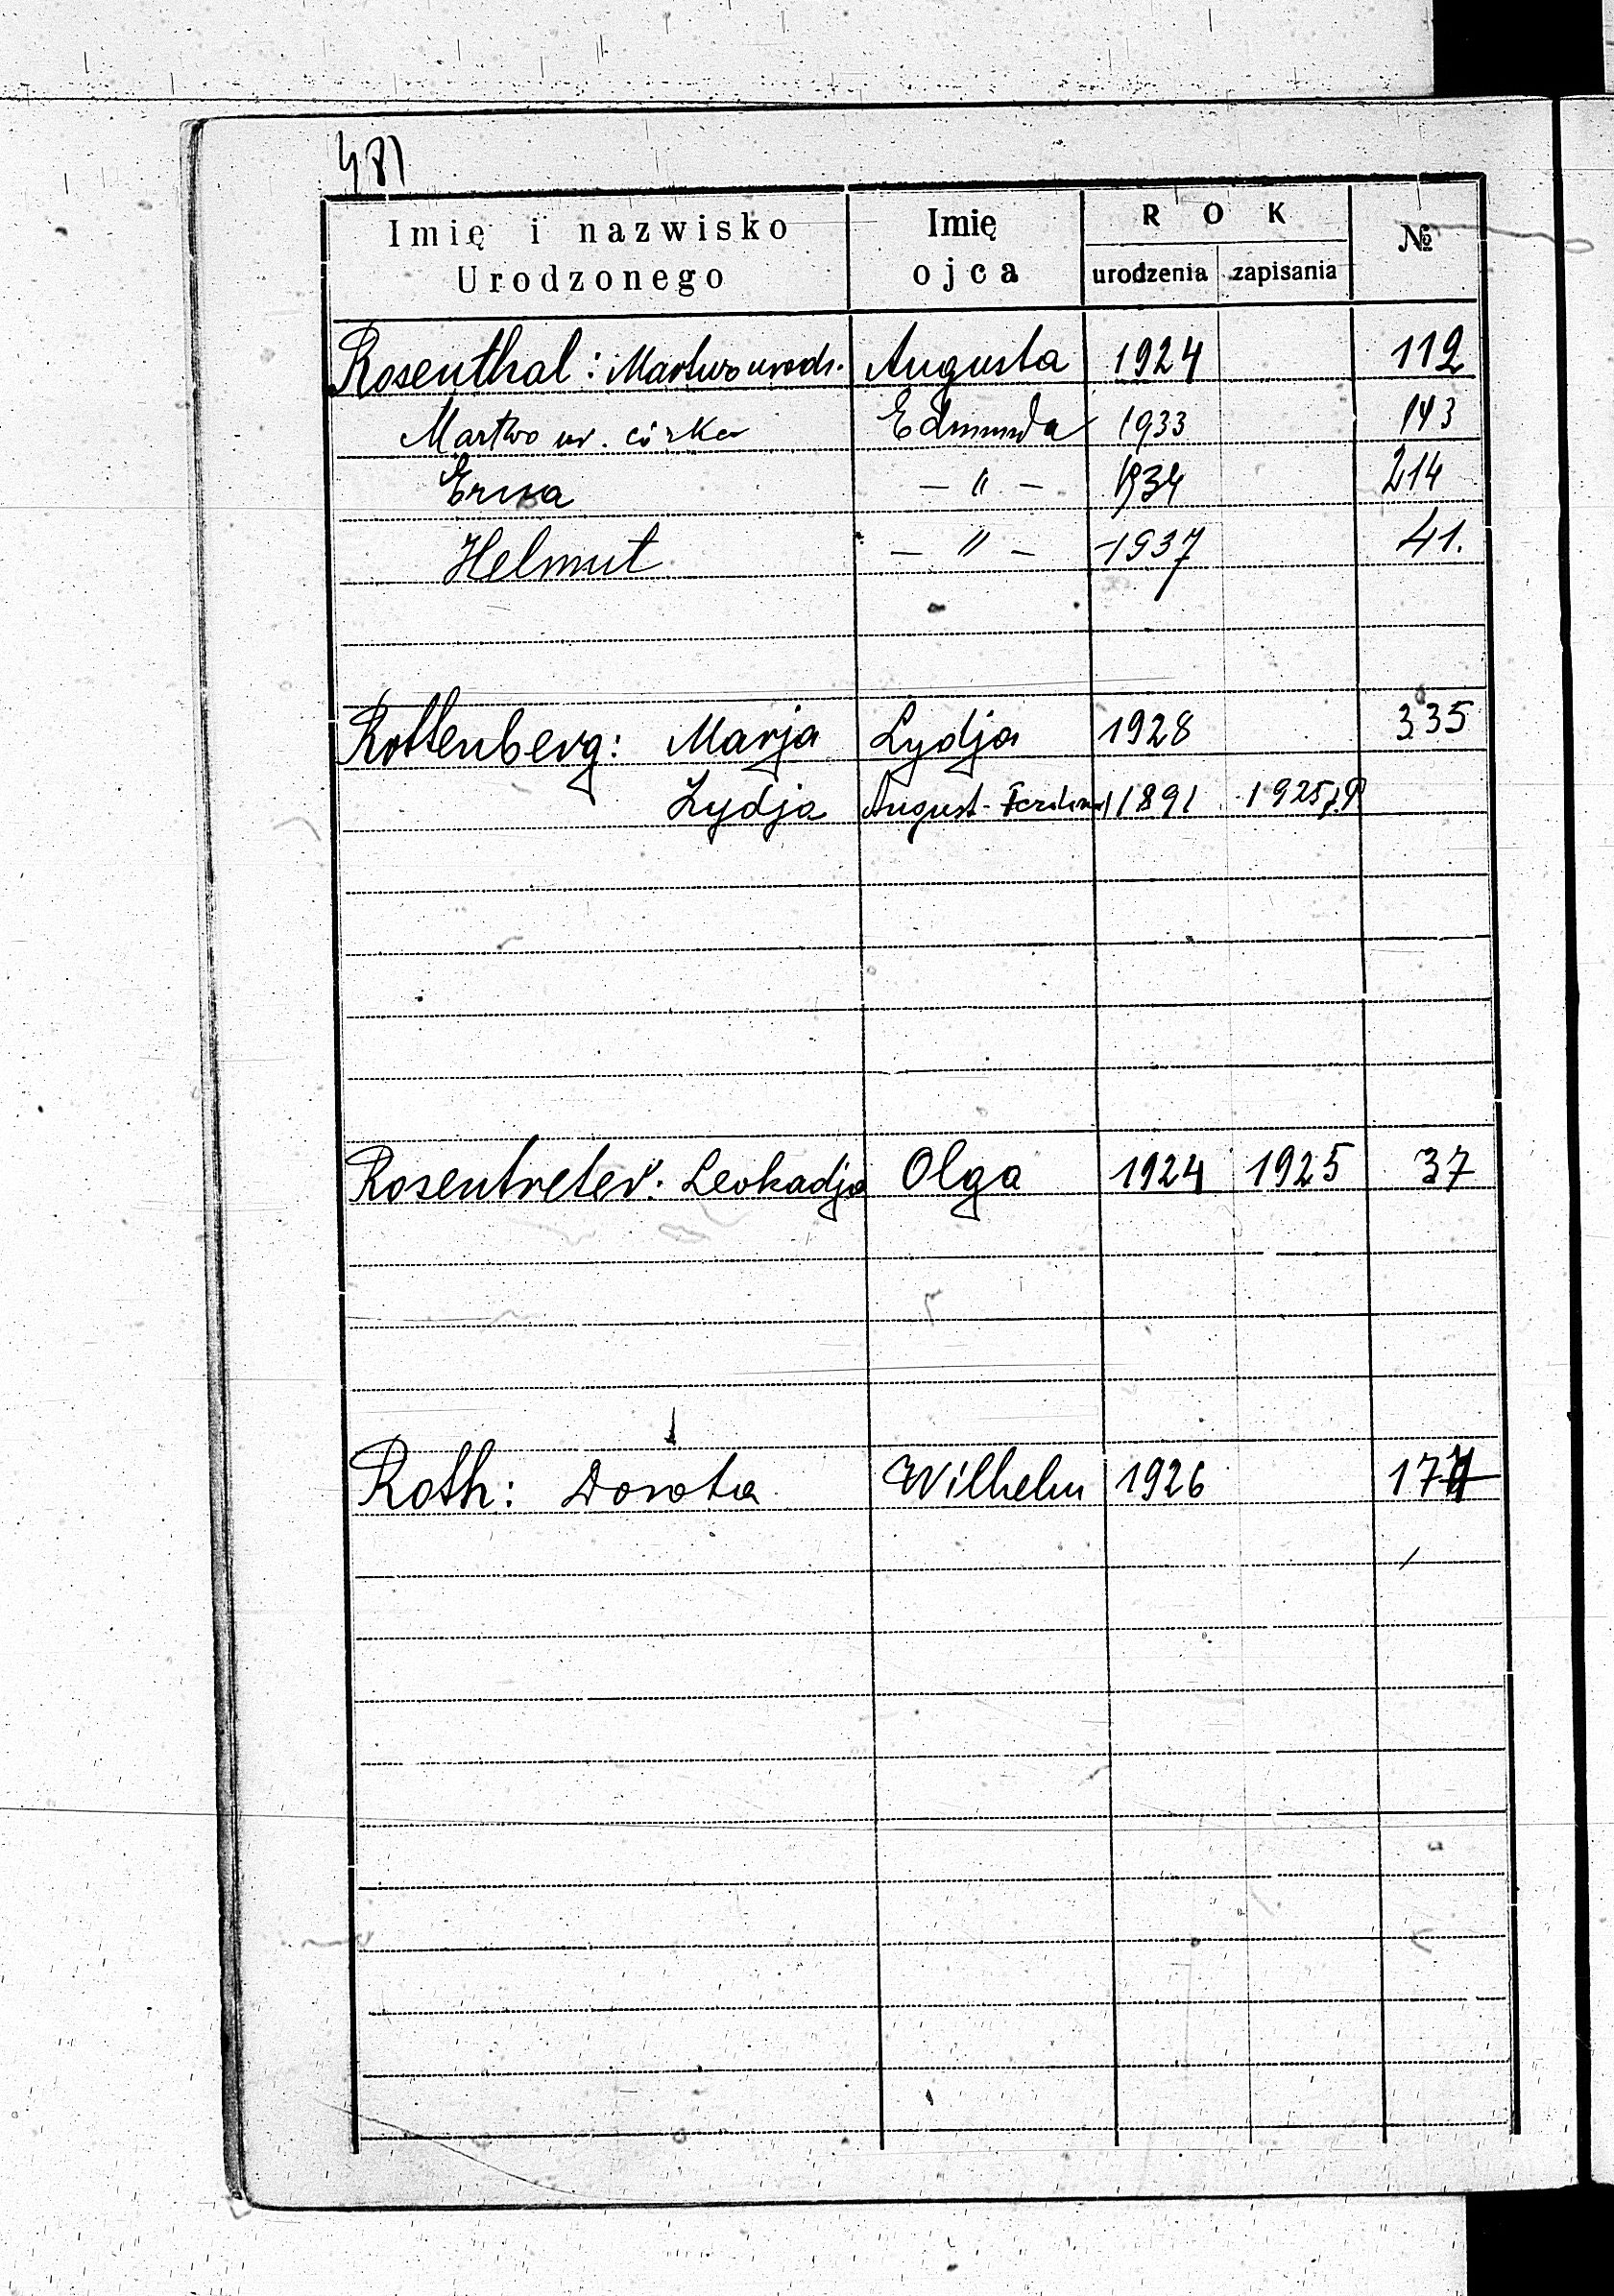 481
Imię i nazwisko Urodzonego Imię ojca R O K urodzenia zapisania №
Rosenthal: Martwo urodz. Augusta 1924 112
Martwo ur. córka Edmunda 1933 143
Erna — " — 1934 214
Helmut — " — 1937 41.
Rottenberg: Marja Lydja 1928 335
Lydja August- 1891 1925
Rosentreter: Leokadja Olga 1924 1925 37
Roth: Dorota Wilhelm 1926